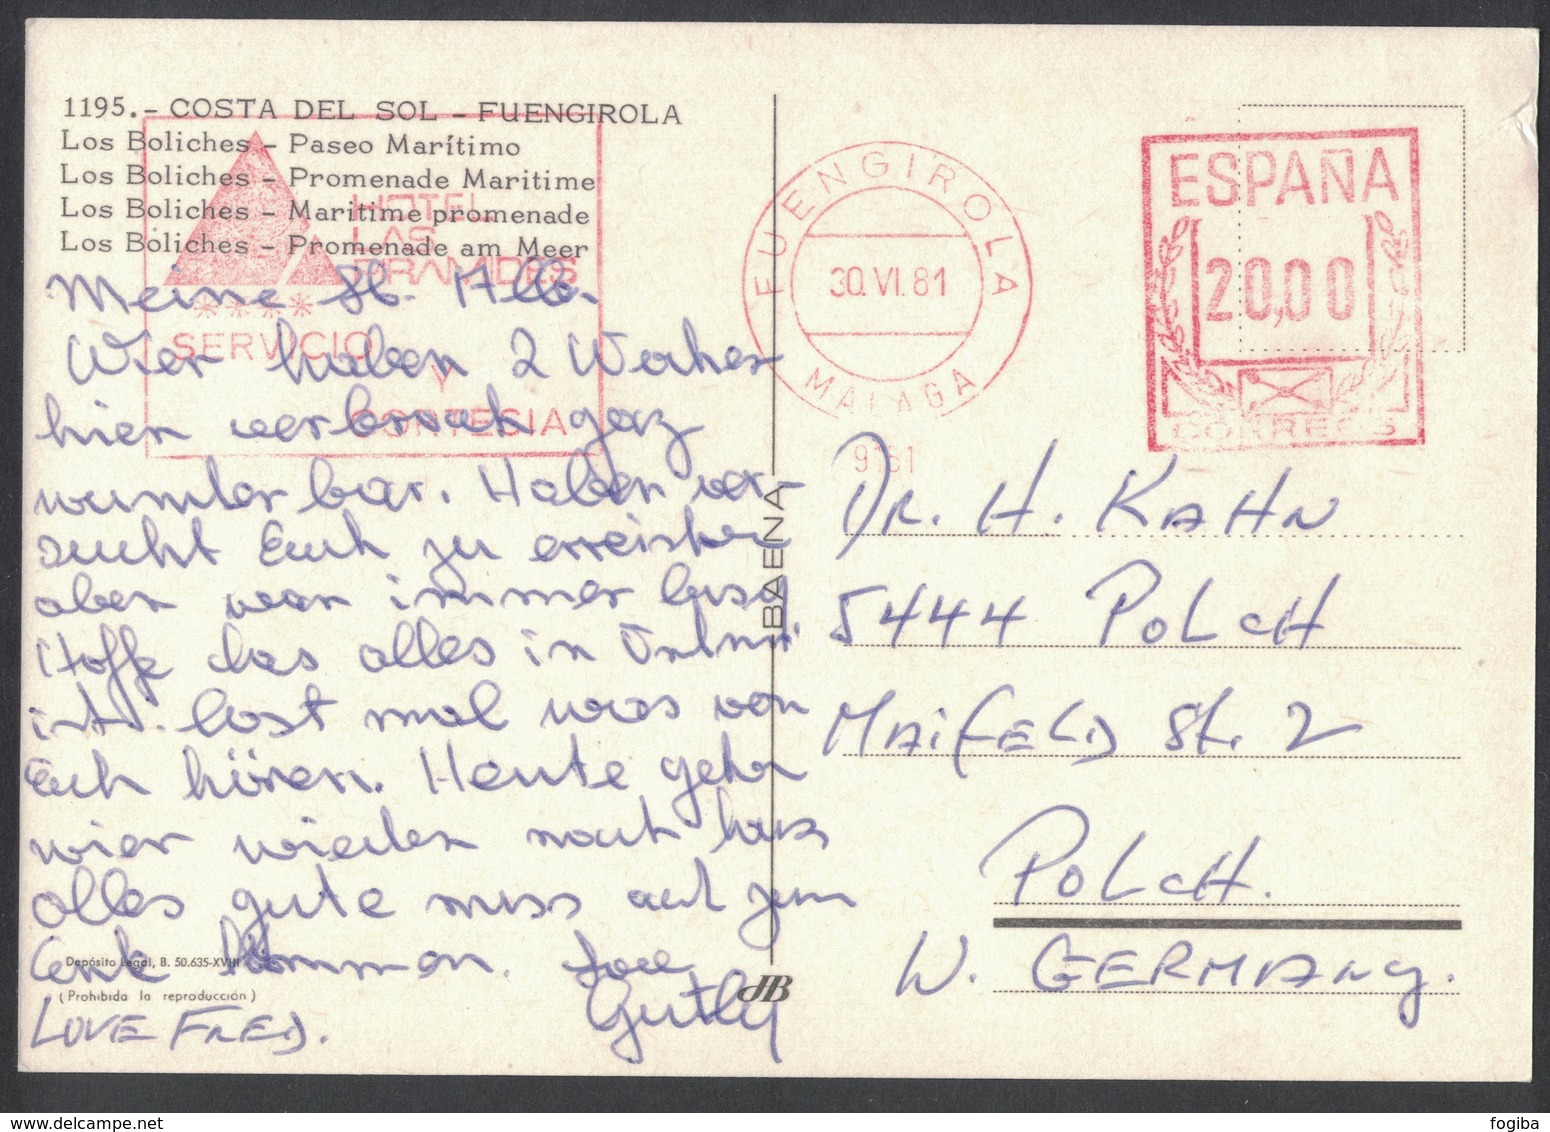 1195.- COSTA DEL SOL - FUENGIROLA
Los Boliches - Paseo Marítimo
Los Boliches - Promenade Maritime
Los Boliches - Maritime promenade
Los Boliches - Promenade am Meer
HOTEL
LAS
PIRAMIDES
****
SERVICIO
Y
CORTESIA
FUENGIROLA
30.VI.81
MALAGA
9161
ESPAÑA
20,00
CORREOS
Meine lb. Alle.
Wier haben 2 Wochen
hier verbracht ganz
wunderbar. Haben ver-
sucht Euch zu erreichen
aber war immer
Hoffe das alles in
ist. Last mal was von
Euch hören. Heute gehen
wier wieder nach haus
alles gute muss auch zum
Depósito Legal, B. 50.635-XVIII
(Prohibida la reproducción)
LOVE FRED.
BAENA
JB
DR. H. KAHN
5444 POLCH
MAIFELD St. 2
POLCH.
W. GERMANY.
fogiba